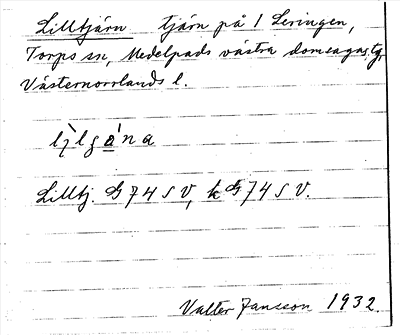 Lilltjärn tjärn på l Leringen,
Torps sn, Medelpads västra domsagas tg,
Västernorrlands l.
Lilltj. G 74 S V, k G 74 S V.
Valter Jansson 1932.